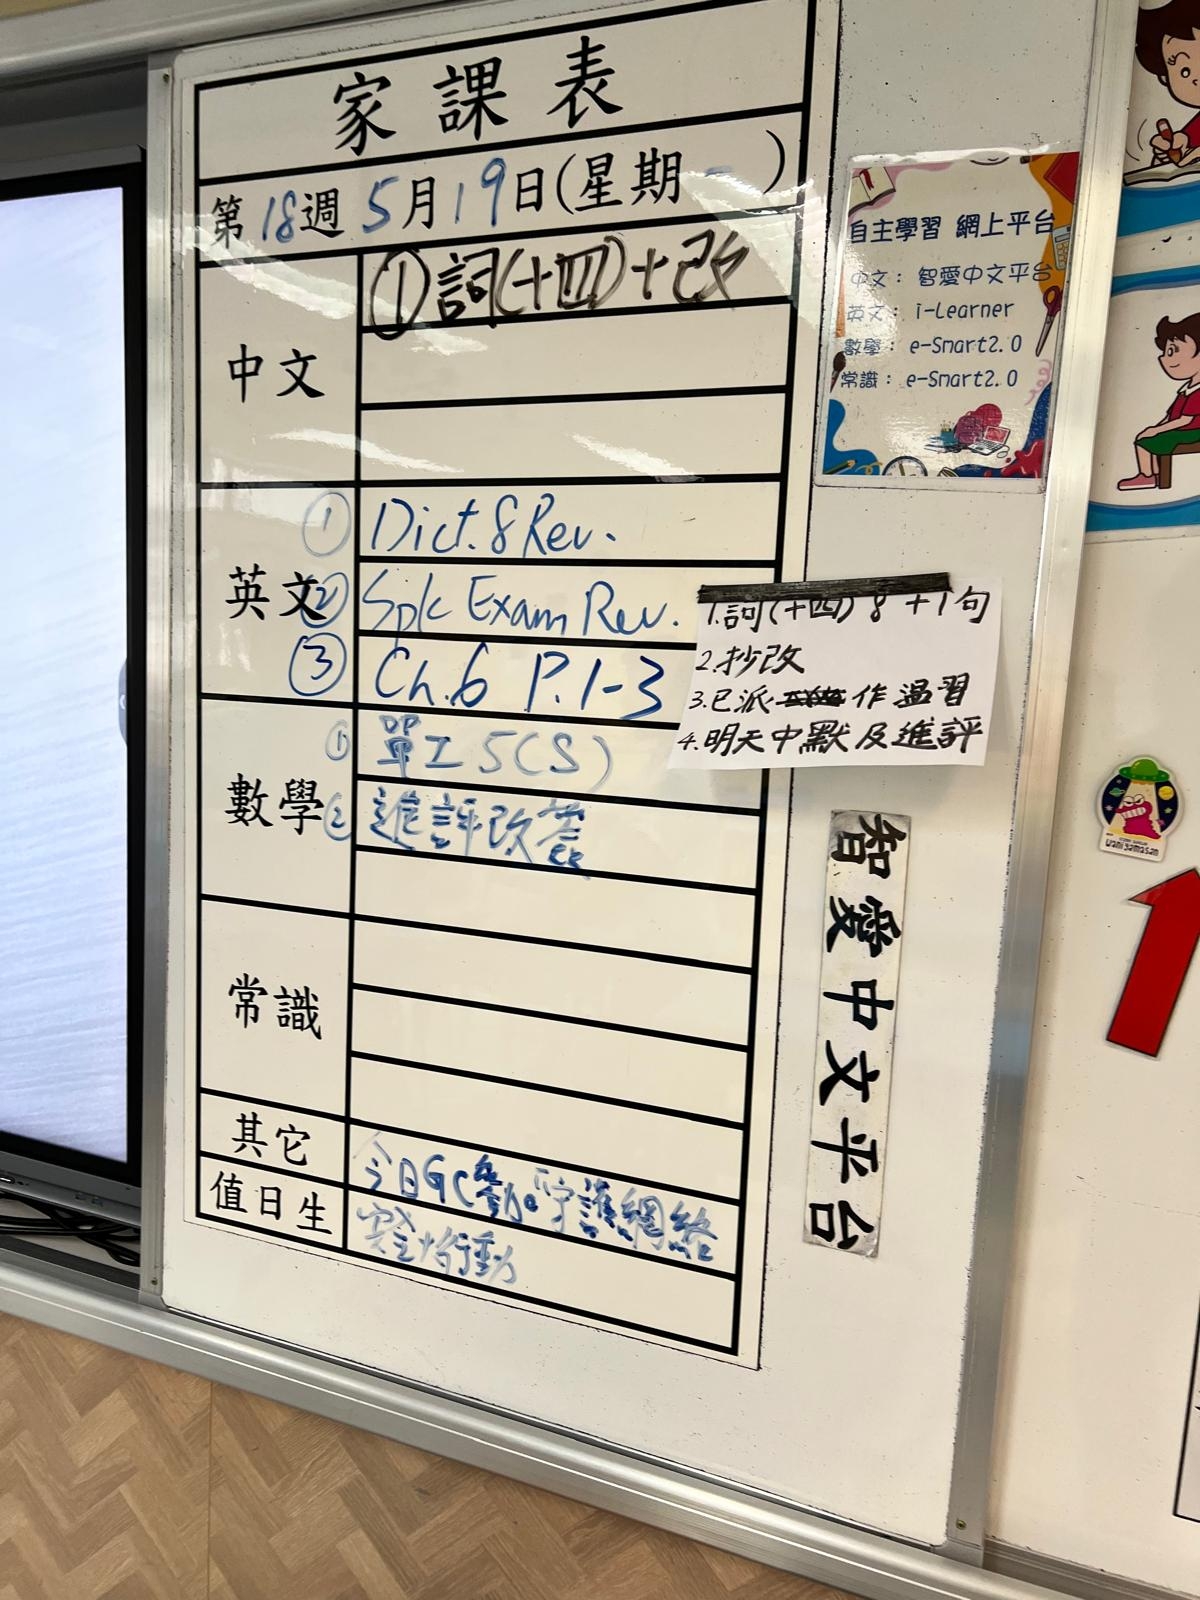 家課表
第18週 5月19日(星期一)
中文
①詞(十四)+改
英文
① Dict. 8 Rev.
② Spk Exam Rev.
③ Ch.6 P.1-3
數學
① 單工5(S)
② 進評改簽
常識
其它
今日GC勤。「守護網絡
值日生
行動
1.詞(十四) 8 +1句
2.抄改
3.已派 作溫習
4.明天中默及進評
自主學習 網上平台
中文: 智愛中文平台
英文: i-Learner
數學: e-Smart2.0
常識: e-Smart2.0
智愛中文平台
wani yamasan